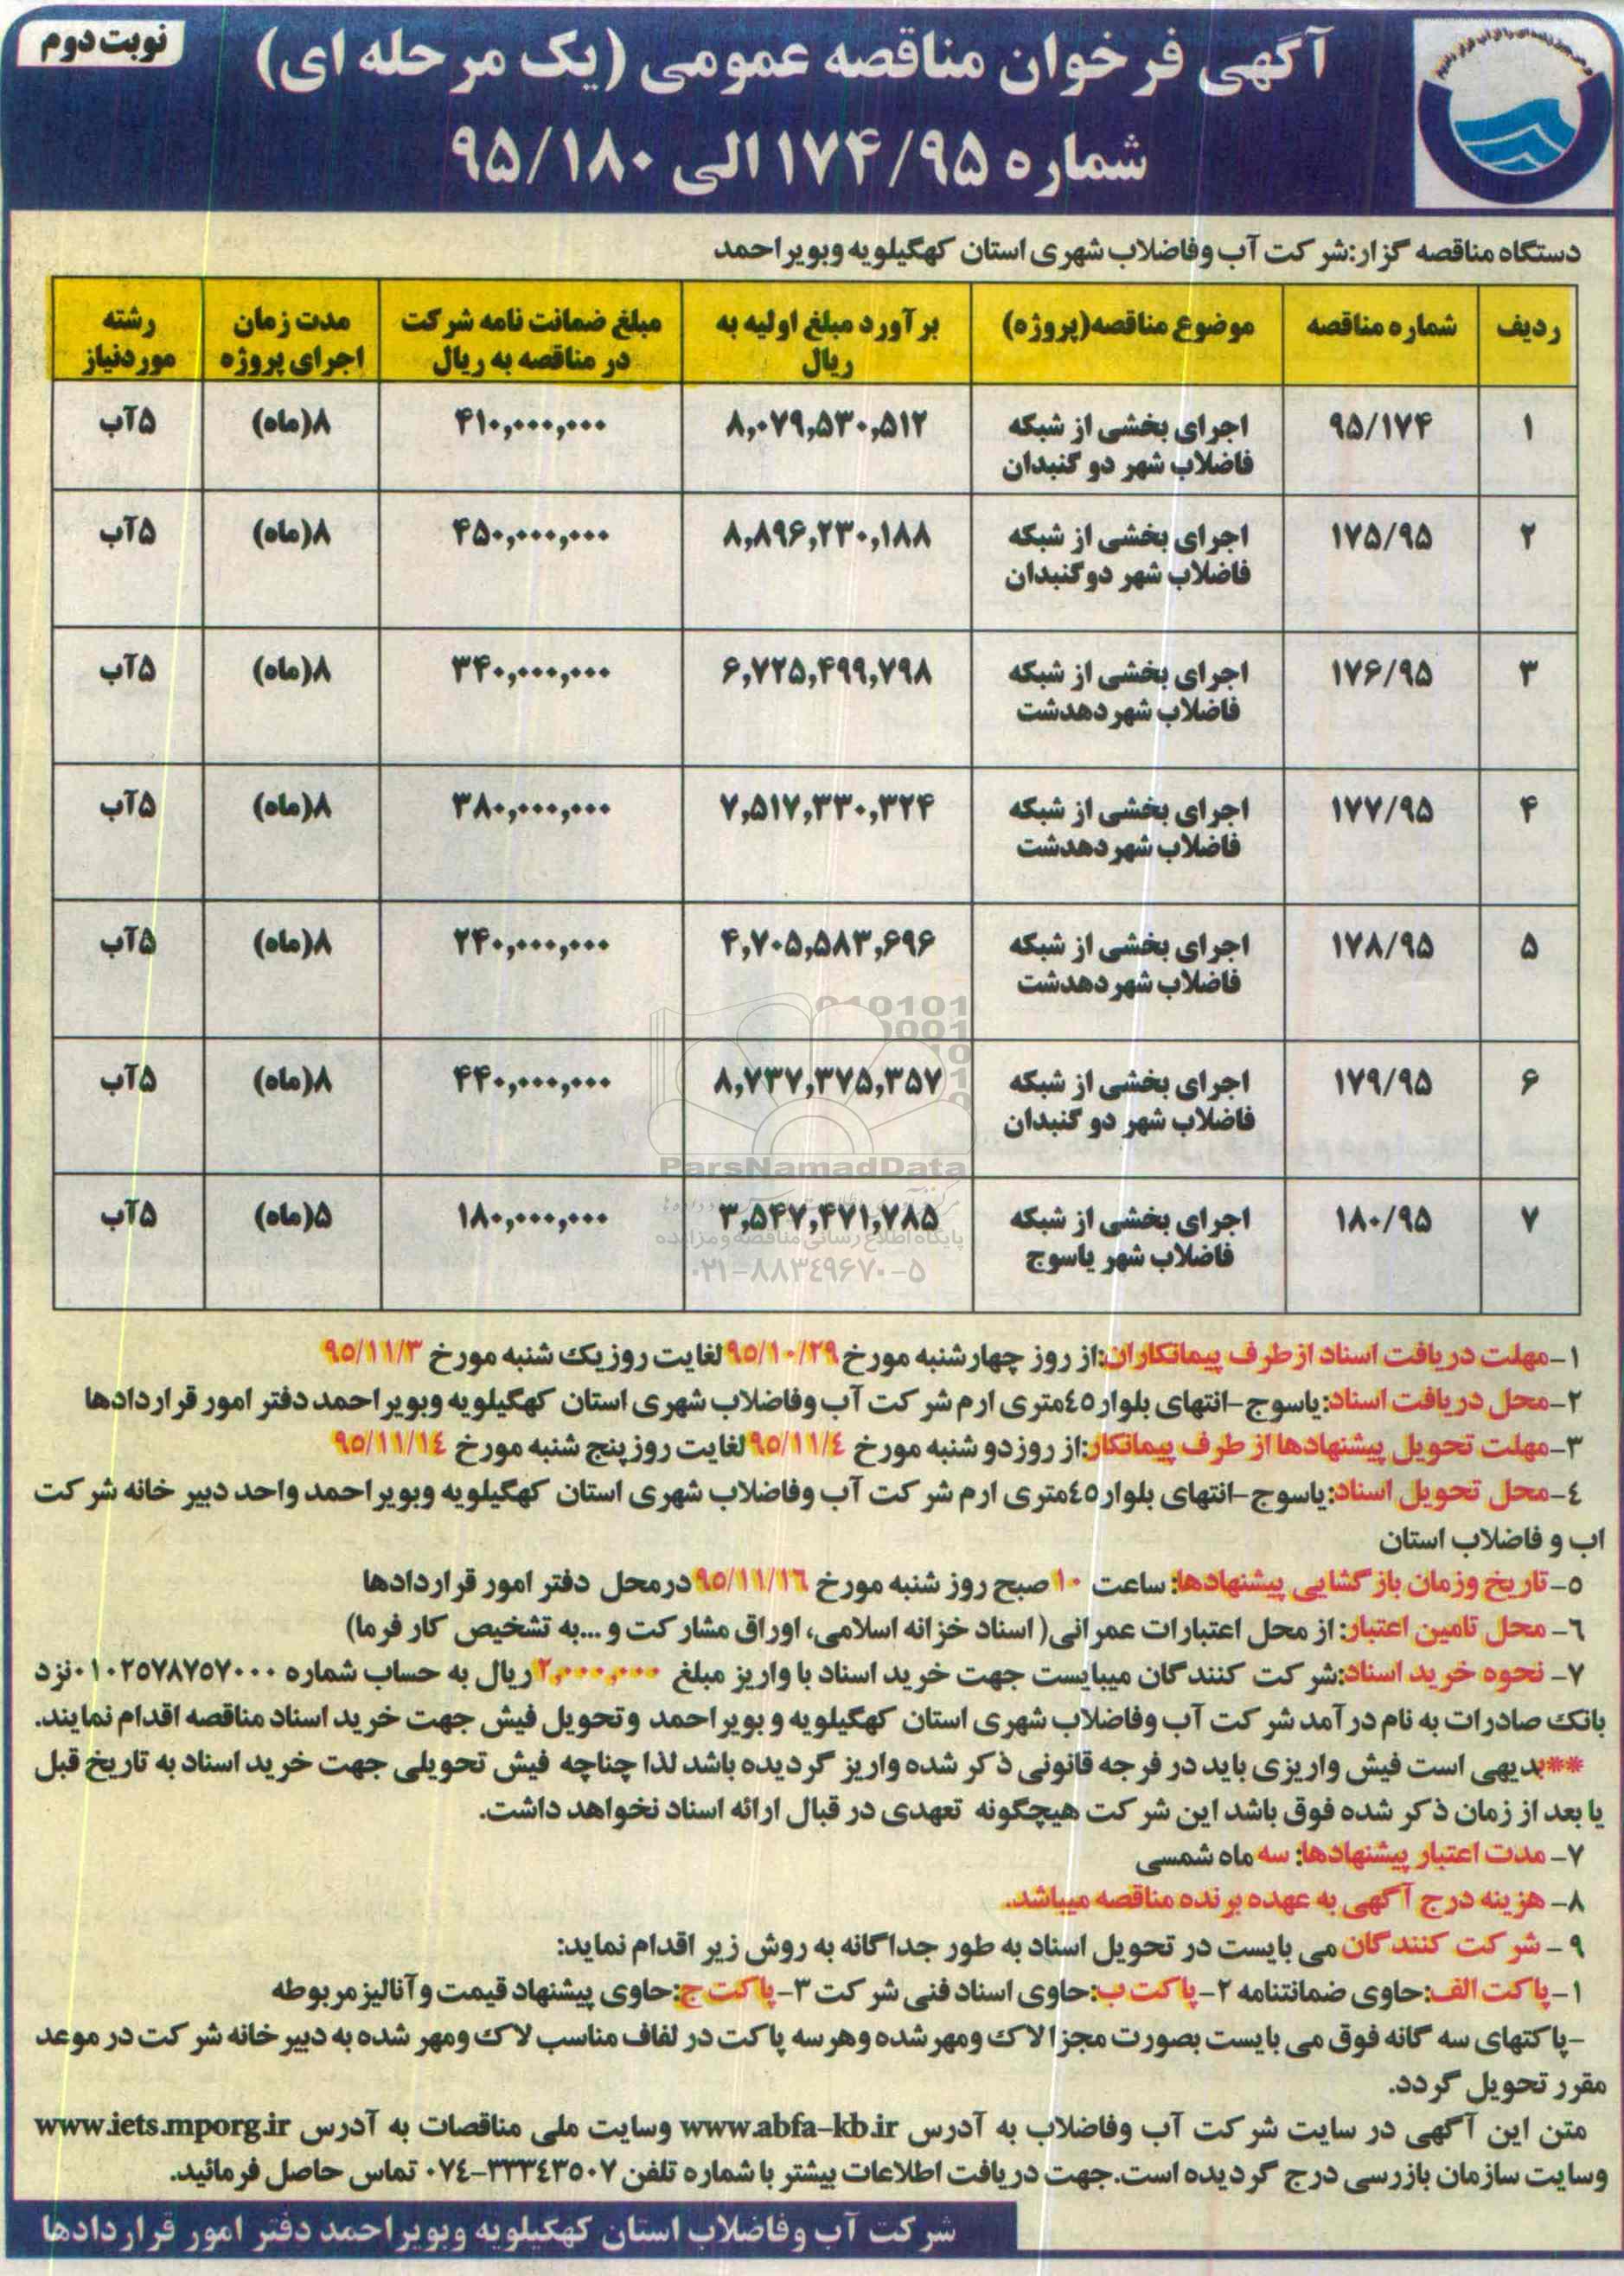 نوبت دوم
آگهی فرخوان مناقصه عمومی (یک مرحله ای)
شماره ۱۷۴/۹۵ الی ۹۵/۱۸۰
دستگاه مناقصه گزار:شرکت آب وفاضلاب شهری استان کهگیلویه وبویراحمد
ردیف | شماره مناقصه | موضوع مناقصه(پروژه) | برآورد مبلغ اولیه به ریال | مبلغ ضمانت نامه شرکت در مناقصه به ریال | مدت زمان اجرای پروژه | رشته موردنیاز
۱ | ۹۵/۱۷۴ | اجرای بخشی از شبکه فاضلاب شهر دو گنبدان | ۸,۰۷۹,۵۳۰,۵۱۲ | ۴۱۰,۰۰۰,۰۰۰ | ۸(ماه) | ۵آب
۲ | ۱۷۵/۹۵ | اجرای بخشی از شبکه فاضلاب شهر دوگنبدان | ۸,۸۹۶,۲۳۰,۱۸۸ | ۴۵۰,۰۰۰,۰۰۰ | ۸(ماه) | ۵آب
۳ | ۱۷۶/۹۵ | اجرای بخشی از شبکه فاضلاب شهر دهدشت | ۶,۷۲۵,۴۹۹,۷۹۸ | ۳۴۰,۰۰۰,۰۰۰ | ۸(ماه) | ۵آب
۴ | ۱۷۷/۹۵ | اجرای بخشی از شبکه فاضلاب شهر دهدشت | ۷,۵۱۷,۳۳۰,۳۲۴ | ۳۸۰,۰۰۰,۰۰۰ | ۸(ماه) | ۵آب
۵ | ۱۷۸/۹۵ | اجرای بخشی از شبکه فاضلاب شهر دهدشت | ۴,۷۰۵,۵۸۳,۶۹۶ | ۲۴۰,۰۰۰,۰۰۰ | ۸(ماه) | ۵آب
۶ | ۱۷۹/۹۵ | اجرای بخشی از شبکه فاضلاب شهر دو گنبدان | ۸,۷۳۷,۳۷۵,۳۵۷ | ۴۴۰,۰۰۰,۰۰۰ | ۸(ماه) | ۵آب
۷ | ۱۸۰/۹۵ | اجرای بخشی از شبکه فاضلاب شهر یاسوج | ۳,۵۴۷,۴۷۱,۷۸۵ | ۱۸۰,۰۰۰,۰۰۰ | ۵(ماه) | ۵آب
ParsNamadData
پایگاه اطلاع رسانی مناقصه و مزایده
۰۲۱-۸۸۳۴۹۶۷۰-۵
۱-مهلت دریافت اسناد ازطرف پیمانکاران:از روز چهارشنبه مورخ ۹۵/۱۰/۲۹ لغایت روزیک شنبه مورخ ۹۵/۱۱/۳
۲-محل دریافت اسناد:یاسوج-انتهای بلوار٤٥متری ارم شرکت آب وفاضلاب شهری استان کهگیلویه وبویراحمد دفتر امور قراردادها
۳-مهلت تحویل پیشنهادها از طرف پیمانکار:از روزدو شنبه مورخ ۹۵/۱۱/٤ لغایت روزپنج شنبه مورخ ۹۵/۱۱/۱٤
٤-محل تحویل اسناد:یاسوج-انتهای بلوار٤٥متری ارم شرکت آب وفاضلاب شهری استان کهگیلویه وبویراحمد واحد دبیر خانه شرکت
اب و فاضلاب استان
۵-تاریخ وزمان بازگشایی پیشنهادها: ساعت ۱۰ صبح روز شنبه مورخ ۹۵/۱۱/۱٦ درمحل دفتر امور قراردادها
٦- محل تامین اعتبار: از محل اعتبارات عمرانی( اسناد خزانه اسلامی، اوراق مشارکت و ...به تشخیص کار فرما)
۷- نحوه خرید اسناد:شرکت کنندگان میبایست جهت خرید اسناد با واریز مبلغ ۲,۰۰۰,۰۰۰ ریال به حساب شماره ۰۱۰۲۵۷۸۷۵۷۰۰۰ نزد
بانک صادرات به نام درآمد شرکت آب وفاضلاب شهری استان کهگیلویه و بویراحمد وتحویل فیش جهت خرید اسناد مناقصه اقدام نمایند.
**بدیهی است فیش واریزی باید در فرجه قانونی ذکر شده واریز گردیده باشد لذا چناچه فیش تحویلی جهت خرید اسناد به تاریخ قبل
یا بعد از زمان ذکر شده فوق باشد این شرکت هیچگونه تعهدی در قبال ارائه اسناد نخواهد داشت.
۷- مدت اعتبار پیشنهادها: سه ماه شمسی
۸- هزینه درج آگهی به عهده برنده مناقصه میباشد.
۹- شرکت کنندگان می بایست در تحویل اسناد به طور جداگانه به روش زیر اقدام نماید:
۱-پاکت الف:حاوی ضمانتنامه ۲-پاکت ب:حاوی اسناد فنی شرکت ۳-پاکت ج:حاوی پیشنهاد قیمت و آنالیز مربوطه
-پاکتهای سه گانه فوق می بایست بصورت مجزا لاک ومهر شده وهرسه پاکت در لفاف مناسب لاک ومهر شده به دبیر خانه شرکت در موعد
مقرر تحویل گردد.
متن این آگهی در سایت شرکت آب وفاضلاب به آدرس www.abfa-kb.ir وسایت ملی مناقصات به آدرس www.iets.mporg.ir
وسایت سازمان بازرسی درج گردیده است.جهت دریافت اطلاعات بیشتر با شماره تلفن ۰۷٤-۳۳۳٤۳۵۰۷ تماس حاصل فرمائید.
شرکت آب وفاضلاب استان کهکیلویه وبویراحمد دفتر امور قراردادها